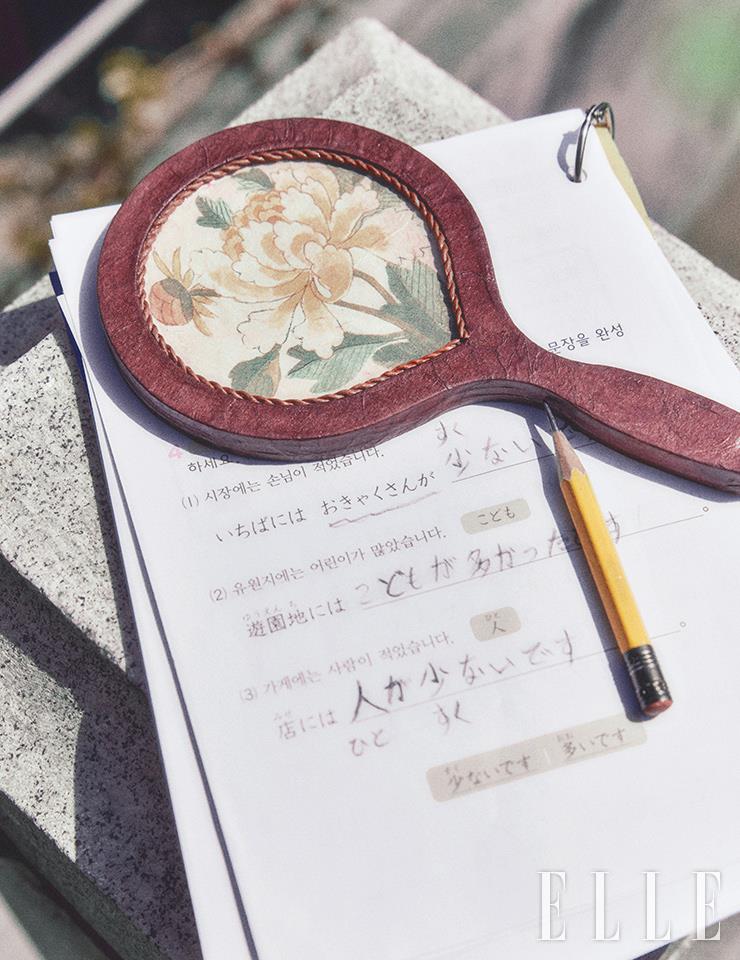 문장을 완성
4
하세요.
すく
(1) 시장에는 손님이 적었습니다.
少ない
いちばには おきゃくさんが
こども
(2) 유원지에는 어린이가 많았습니다.
ゆうえんち
遊園地には こどもが 多かったです。
ひと
人
(3) 가게에는 사람이 적었습니다.
みせ
店には 人が 少ないです。
ひと すく
すく おお
少ないです | 多いです
ELLE